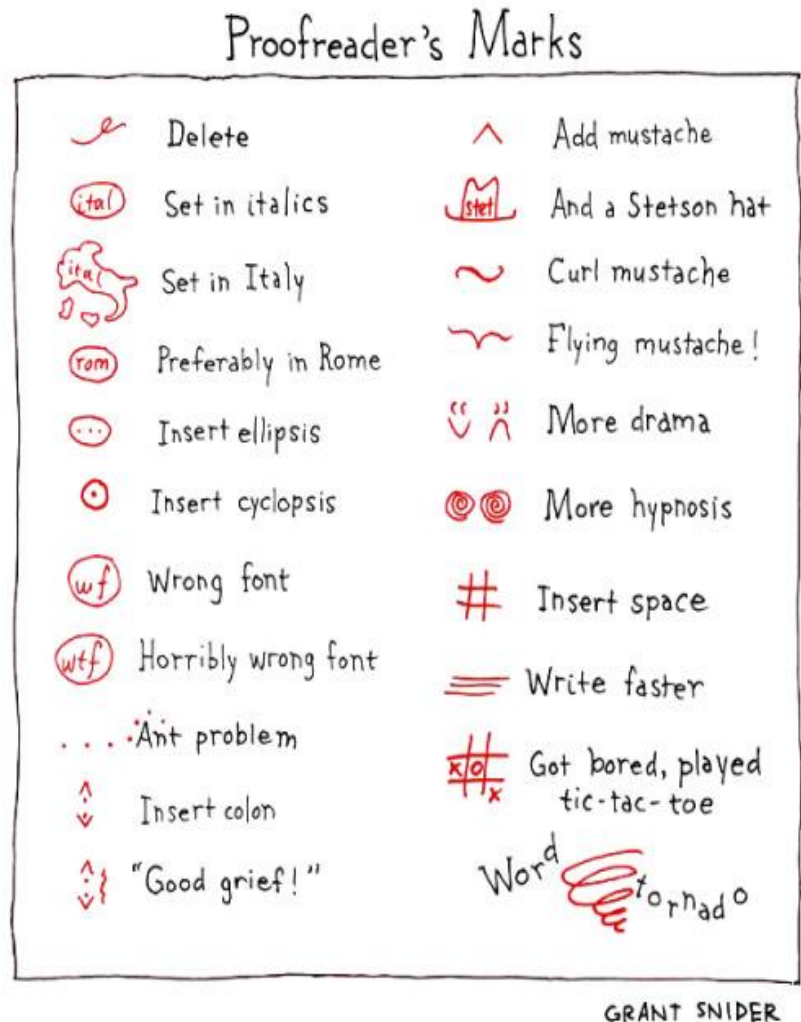 Proofreader's Marks
Delete
ital Set in italics
ital Set in Italy
rom Preferably in Rome
... Insert ellipsis
Insert cyclopsis
wf Wrong font
wtf Horribly wrong font
Ant problem
Insert colon
"Good grief!"
Add mustache
stet And a Stetson hat
Curl mustache
Flying mustache!
More drama
More hypnosis
# Insert space
Write faster
x o x Got bored, played
tic-tac-toe
Word tornado
GRANT SNIDER